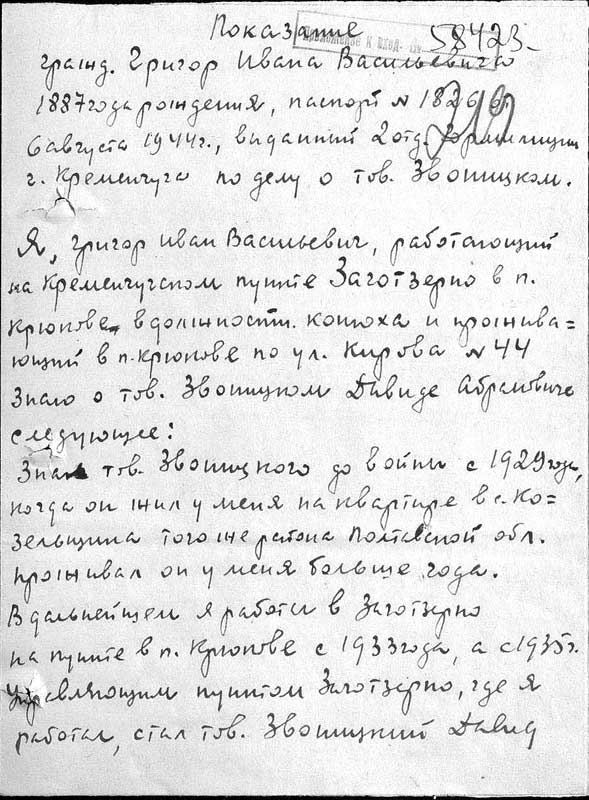 Показание
Приложение к вход. № 58423-
гражд. Григор Ивана Васильевича
1887 года рождения, паспорт № 1826 от
6 августа 1944г., выданный 2 отд. Гормилиции
г. Кременчуга по делу о тов. Звоницком.
Я, Григор Иван Васильевич, работающий
на Кременчугском пункте Заготзерно в п.
Крюкове в должности конюха и прожива=
ющий в п. Крюкове по ул. Кирова № 44
Знаю о тов. Звоницком Давиде Абрамовиче
следующее:
Знал тов. Звоницкого до войны с 1929 года,
когда он жил у меня на квартире в с. Ко=
зельщина того же района Полтавской обл.
Проживал он у меня больше года.
В дальнейшем я работал в Заготзерно
на пункте в п. Крюкове с 1933 года, а с 1935г.
Управляющим пунктом Заготзерно, где я
работал, стал тов. Звоницкий Давид